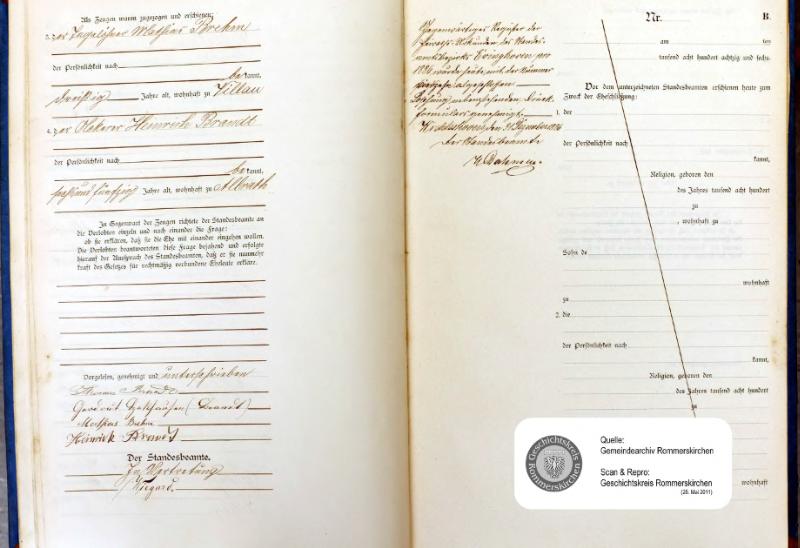 Als Zeugen waren zugezogen und erschienen:
3. der Mathias Brehm
der Persönlichkeit nach
bekannt,
dreißig Jahre alt, wohnhaft zu Villau
4. der Ackerer Heinrich Brandt
der Persönlichkeit nach
bekannt,
sechsundfünfzig Jahre alt, wohnhaft zu Allrath
In Gegenwart der Zeugen richtete der Standesbeamte an
die Verlobten einzeln und nach einander die Frage:
ob sie erklären, daß sie die Ehe mit einander eingehen wollen.
Die Verlobten beantworteten diese Frage bejahend und erfolgte
hierauf der Ausspruch des Standesbeamten, daß er sie nunmehr
kraft des Gesetzes für rechtmäßig verbundene Eheleute erkläre.
Vorgelesen, genehmigt und unterschrieben
Gerdrut (Brandt)
Mathias Brehm
Heinrich Brandt
Der Standesbeamte.
In Vertretung
Wiegard.
Gegenwärtiges Register der
Heiraths-Urkunden des Standes-
amtsbezirks Evinghoven pro
1886 wurde heute mit der Nummer
abgeschlossen.
nebenstehenden Druck-
formulars genehmigt.
den 31 Dezember 1886
Der Standesbeamte
Nr. B.
am ten
tausend acht hundert achtzig und sechs.
Vor dem unterzeichneten Standesbeamten erschienen heute zum
Zweck der Eheschließung:
1. der
der Persönlichkeit nach
kannt,
Religion, geboren den
des Jahres tausend acht hundert
zu
, wohnhaft zu
Sohn de
wohnhaft
zu
2. die
der Persönlichkeit nach
kannt,
Religion, geboren den
des Jahres tausend acht hundert
zu
wohnhaft
Geschichtskreis
Rommerskirchen
Quelle:
Gemeindearchiv Rommerskirchen
Scan & Repro:
Geschichtskreis Rommerskirchen
(26. Mai 2011)